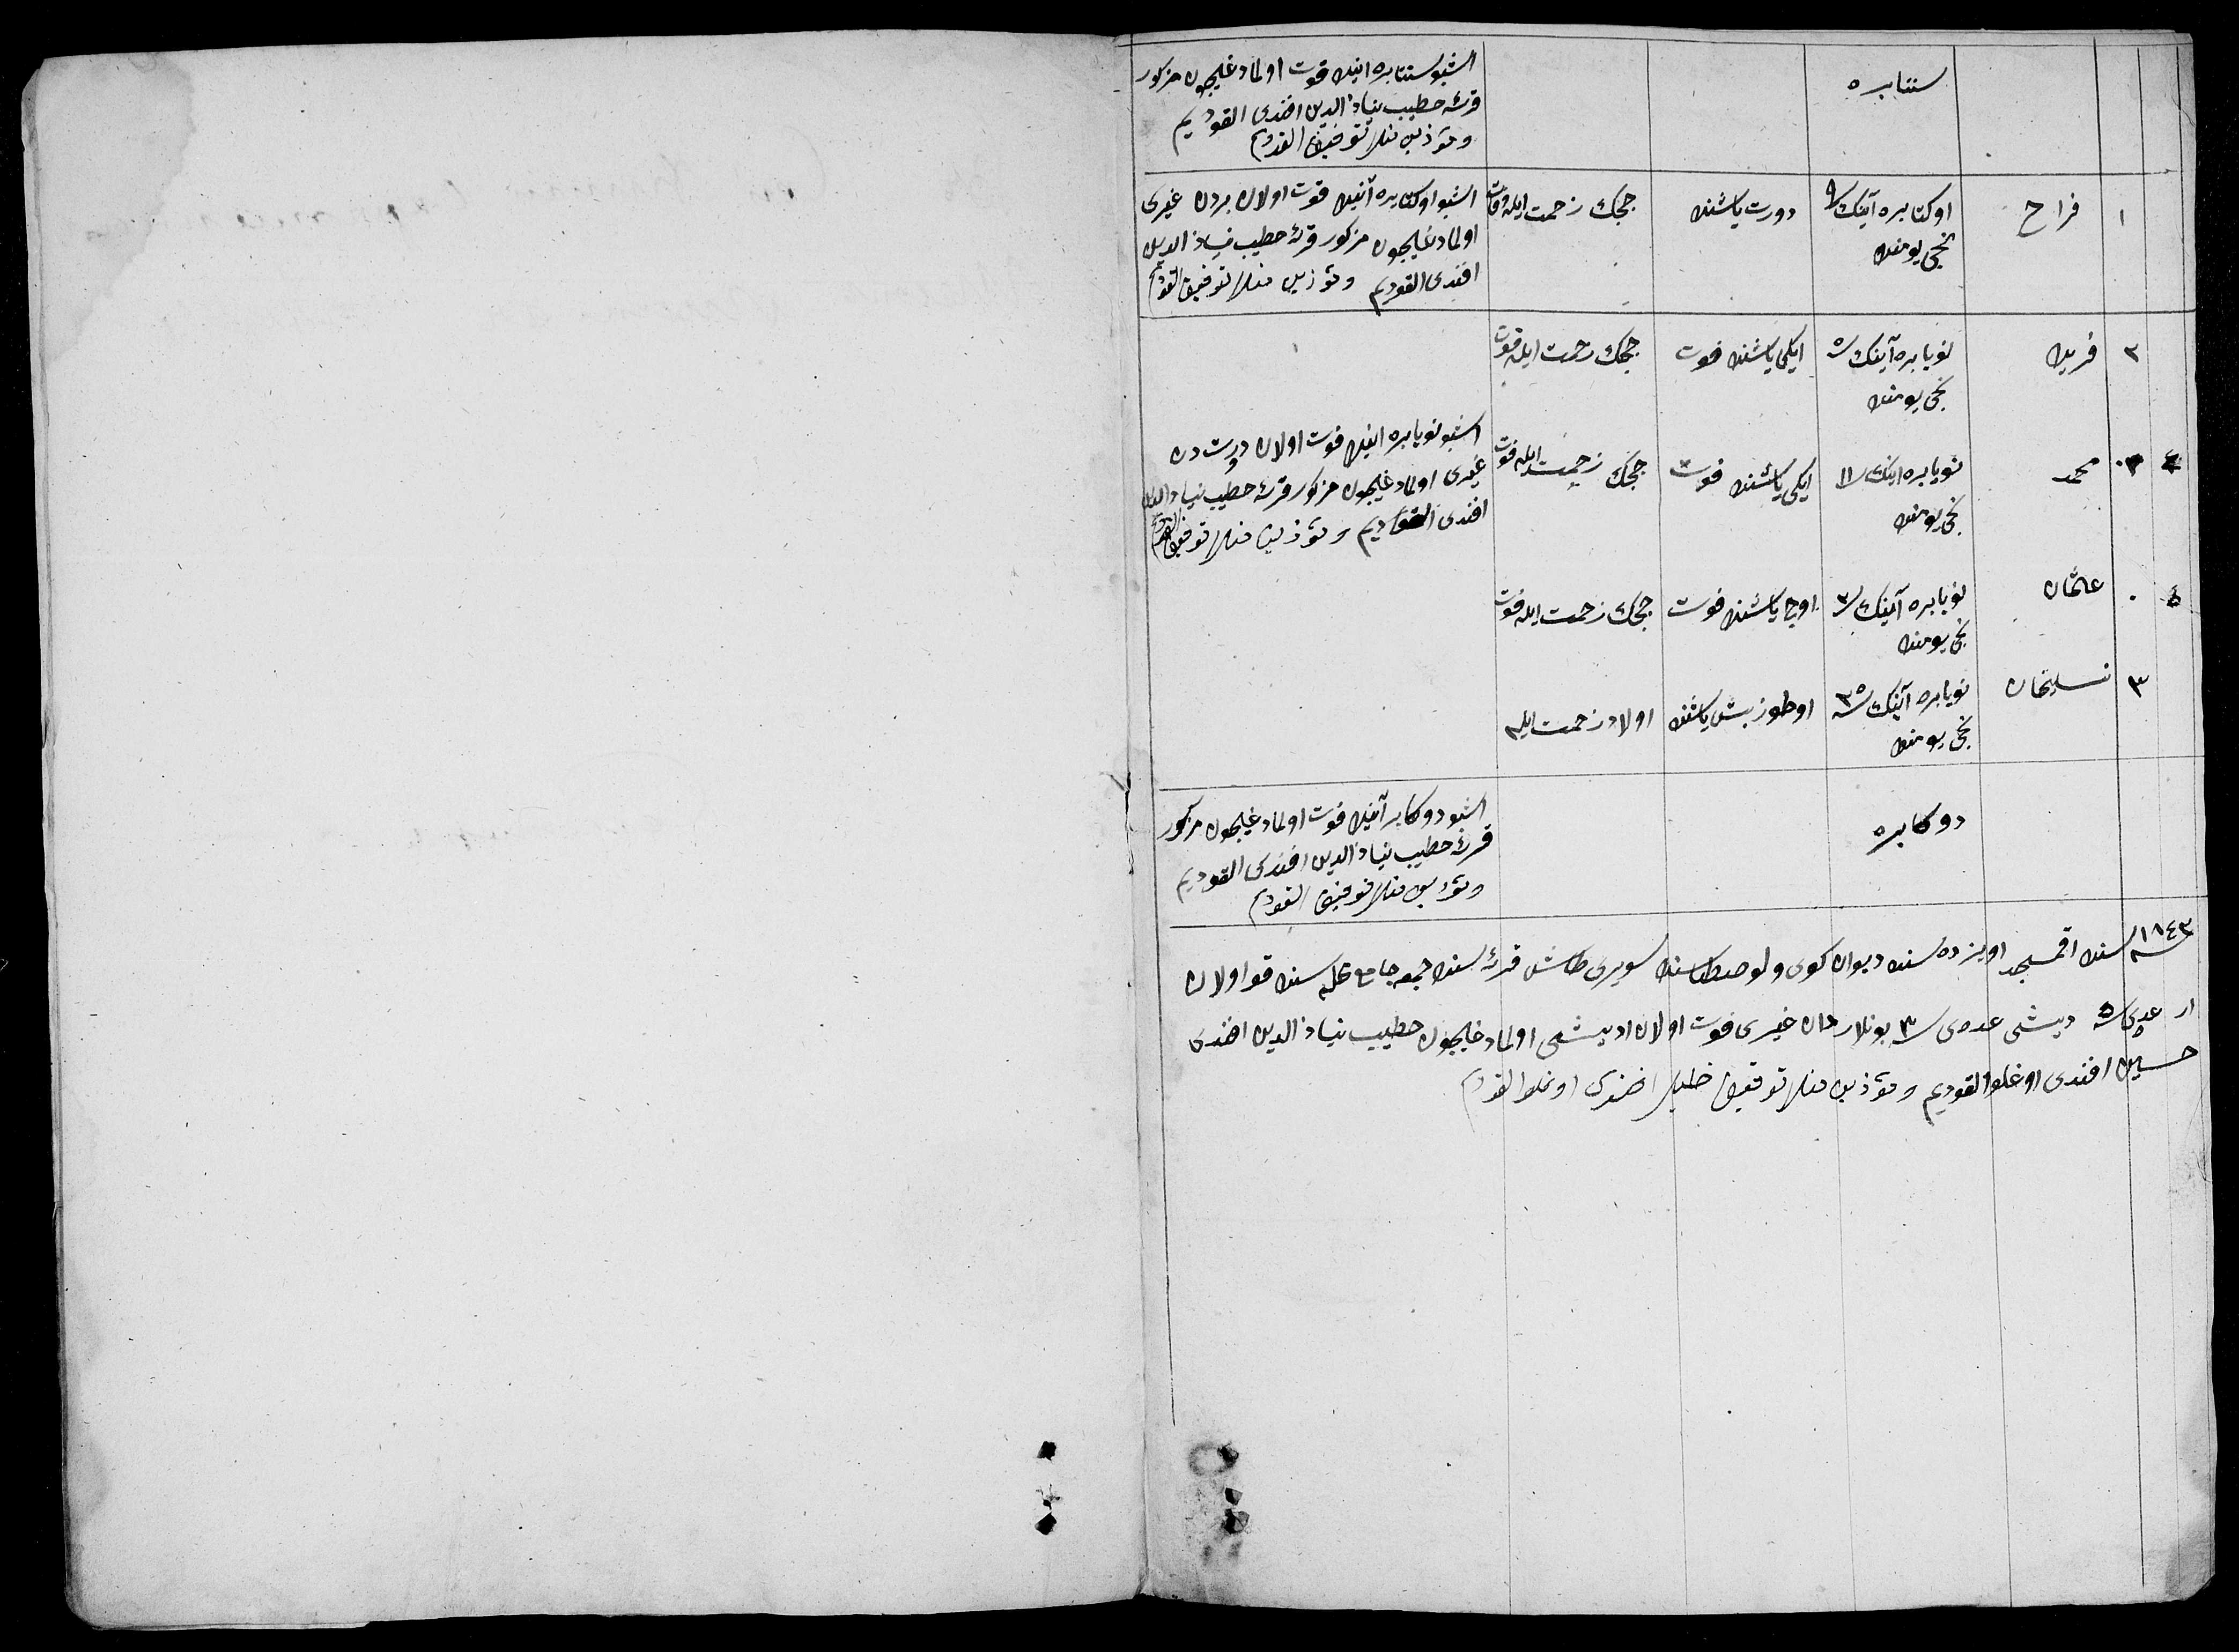 سنتابره
اشبو سنتابره اینده فوت اولمادغیچون مزکور
قریه خطیب نیاذ الدین افندی القودیم
ومؤذین منلا توفیق القودیم
۱ فراح
اوکتابره آینک ۹
نجی یومنده
دورت یاشنده
چچک زحمت ایله وفات
اشبو اوکتابره آینده فوت اولان بردن غیری
اولمادغیچون مزکور قریه خطیب نیاذ الدین
افندی القودیم ومؤذین منلا توفیق القودیم
۲ فریده
نویابره آینک ۵
نجی یومنده
ایکی یاشنده فوت
چچک زحمت ایله فوت
محمد
نویابره اینک ۱۱
نجی یومنده
ایکی یاشنده فوت
چچک زحمت ایله فوت
اشبو نویابره اینده فوت اولان دورت دن
غیری اولمادغیچون مزکور قریه خطیب نیاذ الدین
افندی القودیم ومؤذین منلا توفیق القودیم
عثمان
نویابره آینک
نجی یومنده
اوچ یاشنده فوت
چچک زحمت ایله فوت
۳
نویابره آینک ۲۵
نجی یومنده
اوطوز بش یاشنده
اولاد زحمت ایله
دوکابره
اشبو دوکابر آینده فوت اولمادغیچون مزکور
قریه خطیب نیاذ الدین افندی القودیم
ومؤذین منلا توفیق القودیم
۱۸٤۳ سنه سنده اقمسجد اویزده سنده دیوان کوی ولوصطاسنده سویری طاش قریه سنده جمعه جامع محله سنده فو اولان
ار عددی ۵ دیشی عددی ۳ بونلاردان غیری فوت اولان ار دیشی اولمادغیچون خطیب نیاذ الدین افندی
حسین افندی اوغلو القودیم ومؤذین منلا توفیق خلیل افندی اوغلو القودیم